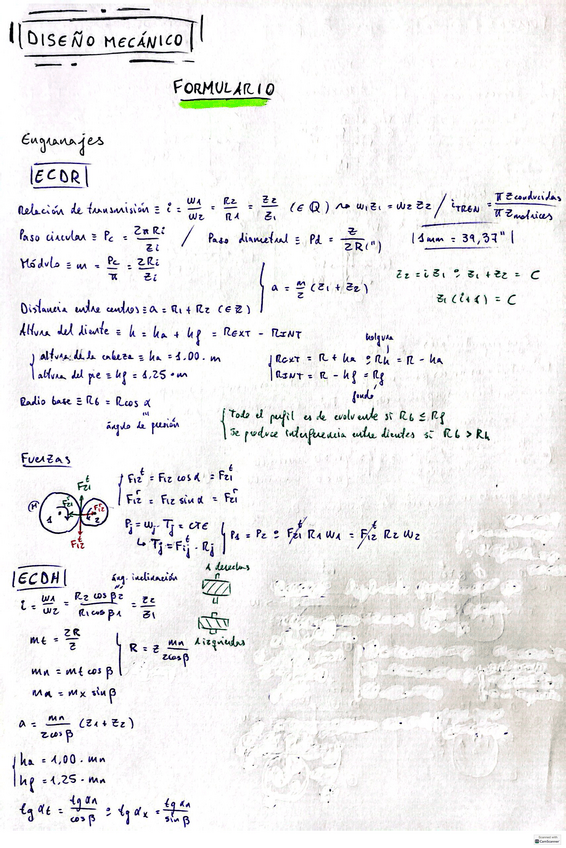 DISEÑO MECÁNICO
FORMULARIO
Engranajes
ECDR
Relación de transmisión ≡ i = ω1/ω2 = R2/R1 = Z2/Z1 (∈ Q) ⇝ ω1Z1 = ω2Z2 / iTREN = π Zconducidas / π Zmotrices
Paso circular ≡ Pc = 2πRi/Zi / Paso diametral ≡ Pd = Z/2R(") | 1mm = 39,37" |
Módulo ≡ m = Pc/π = 2Ri/Zi
Z2 = iZ1 : Z1 + Z2 = C
Z1(i+1) = C
Distancia entre centros ≡ a = R1 + R2 (∈ Z) } a = m/2 (Z1 + Z2)
Altura del diente ≡ h = ha + hf = REXT - RINT
altura de la cabeza ≡ ha = 1,00 · m
altura del pie ≡ hf = 1,25 · m
holgura
REXT = R + ha : Rh = R - ha
RINT = R - hf = Rf
fondo
Radio base ≡ Rb = R cos α
ángulo de presión
Todo el perfil es de evolvente si Rb ≤ Rf
Se produce interferencia entre dientes si Rb > Rh
Fuerzas
F12^t = F12 cos α = F21^t
F12^r = F12 sin α = F21^r
1 2 F21^t F21^r F12^r F12^t
Pj = ωj · Tj = cte
↳ Tj = Fij^t · Rj
P1 = P2 : F21^t R1 ω1 = F12^t R2 ω2
ECDH
áng. inclinación
i = ω1/ω2 = R2 cos β2 / R1 cos β1 = Z2/Z1
1 derechas
1 izquierdas
mt = 2R/Z
mn = mt cos β
R = Z mn/2cosβ
mn = mx sin β
a = mn/2cosβ (Z1 + Z2)
ha = 1,00 · mn
hf = 1,25 · mn
tg αt = tg αn/cos β : tg αx = tg αn/sin β
CamScanner